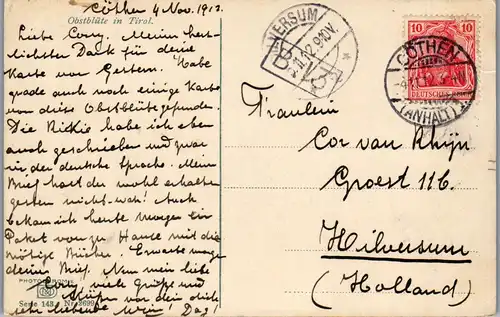 Cöthen 4 Nov. 1912
Obstblüte in Tirol.
Liebe Corry. Meinen herz-
lichsten Dank für deine
Karte von Gestern. Habe
grade auch noch einige Karten
von dies Obstblüte gefunden.
Die Rickie habe ich eben
auch geschrieben und zwar
in der deutsche Sprache. Mein
Brief hast du wohl erhalten
gestern nicht-wah! Auch
bekam ich heute morgen ein
Paket von zu Hause mit die
nötige Bücher. Erwarte morgen
deinen Brief. Nun mein liebe
viele Grüße und
Küsse von dein dich
sehr liebende Wim! Dag!
PHOTOCHROMIE
Serie 143. Nr. 2699
HILVERSUM
10 10
DEUTSCHES REICH
CÖTHEN
(ANHALT)
Fräulein
Cor van Rhijn
Groest 116.
Hilversum
(Holland)